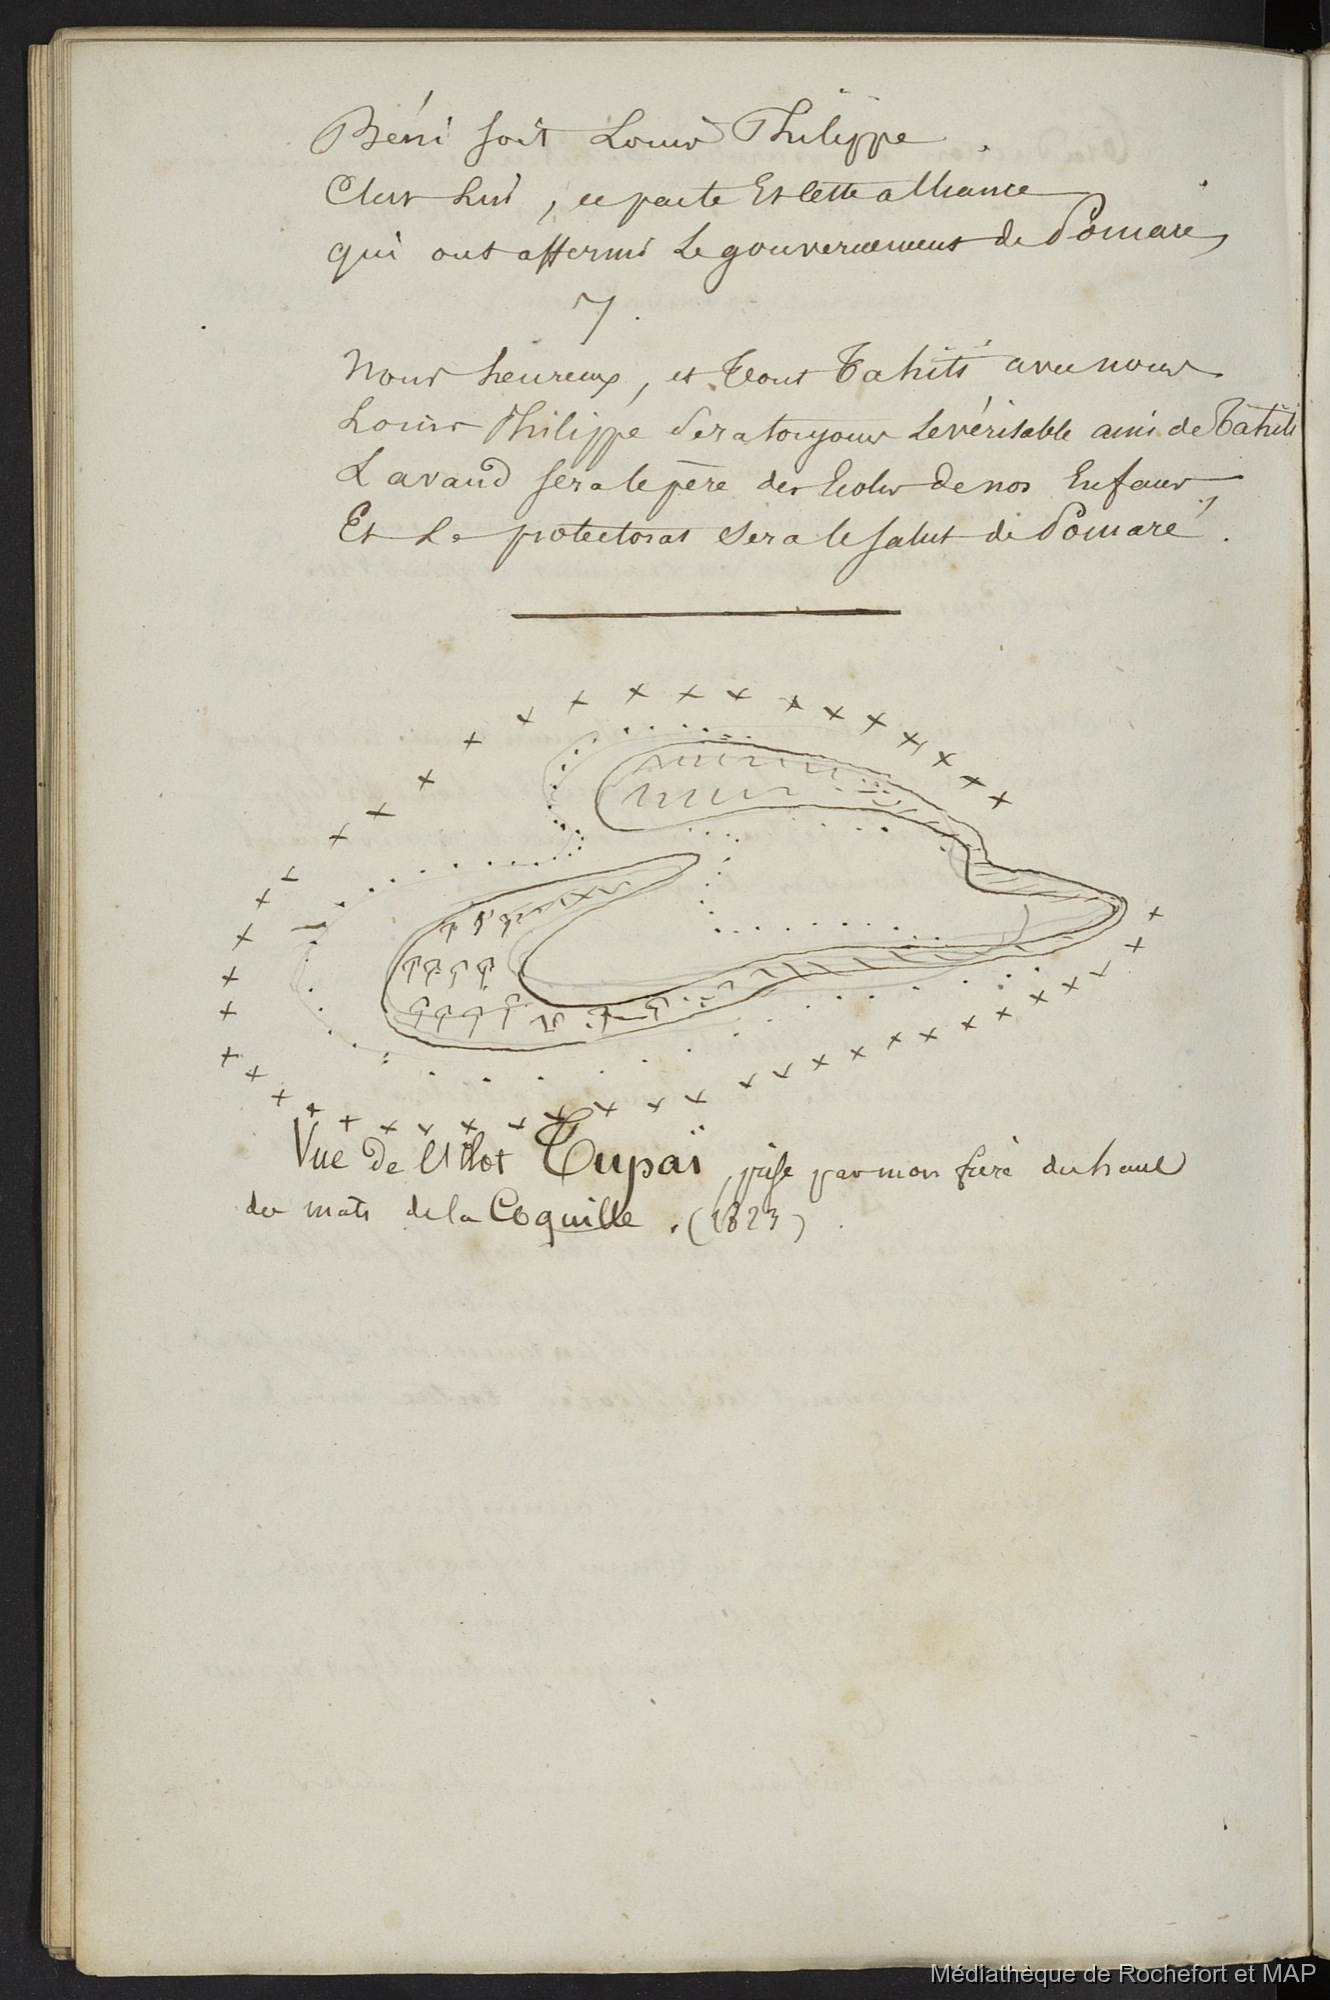 Béni soit Louis Philippe.
C'est lui, ce pacte et cette alliance
qui ont affermi le gouvernement de Pomaré,
7.
Nous heureux, et tout Tahiti avec nous
Louis Philippe sera toujours le véritable ami de Tahiti
Lavaud sera le père des Ecoles de nos Enfants
Et le protectorat sera le salut de Pomaré.
Vue de l'îlot Tupaï, prise par mon frère du haut
des mats de la Coquille. (1823)
Médiathèque de Rochefort et MAP